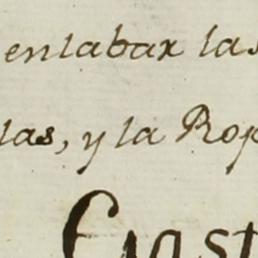 enlabar las
las, y la Rop
Gast